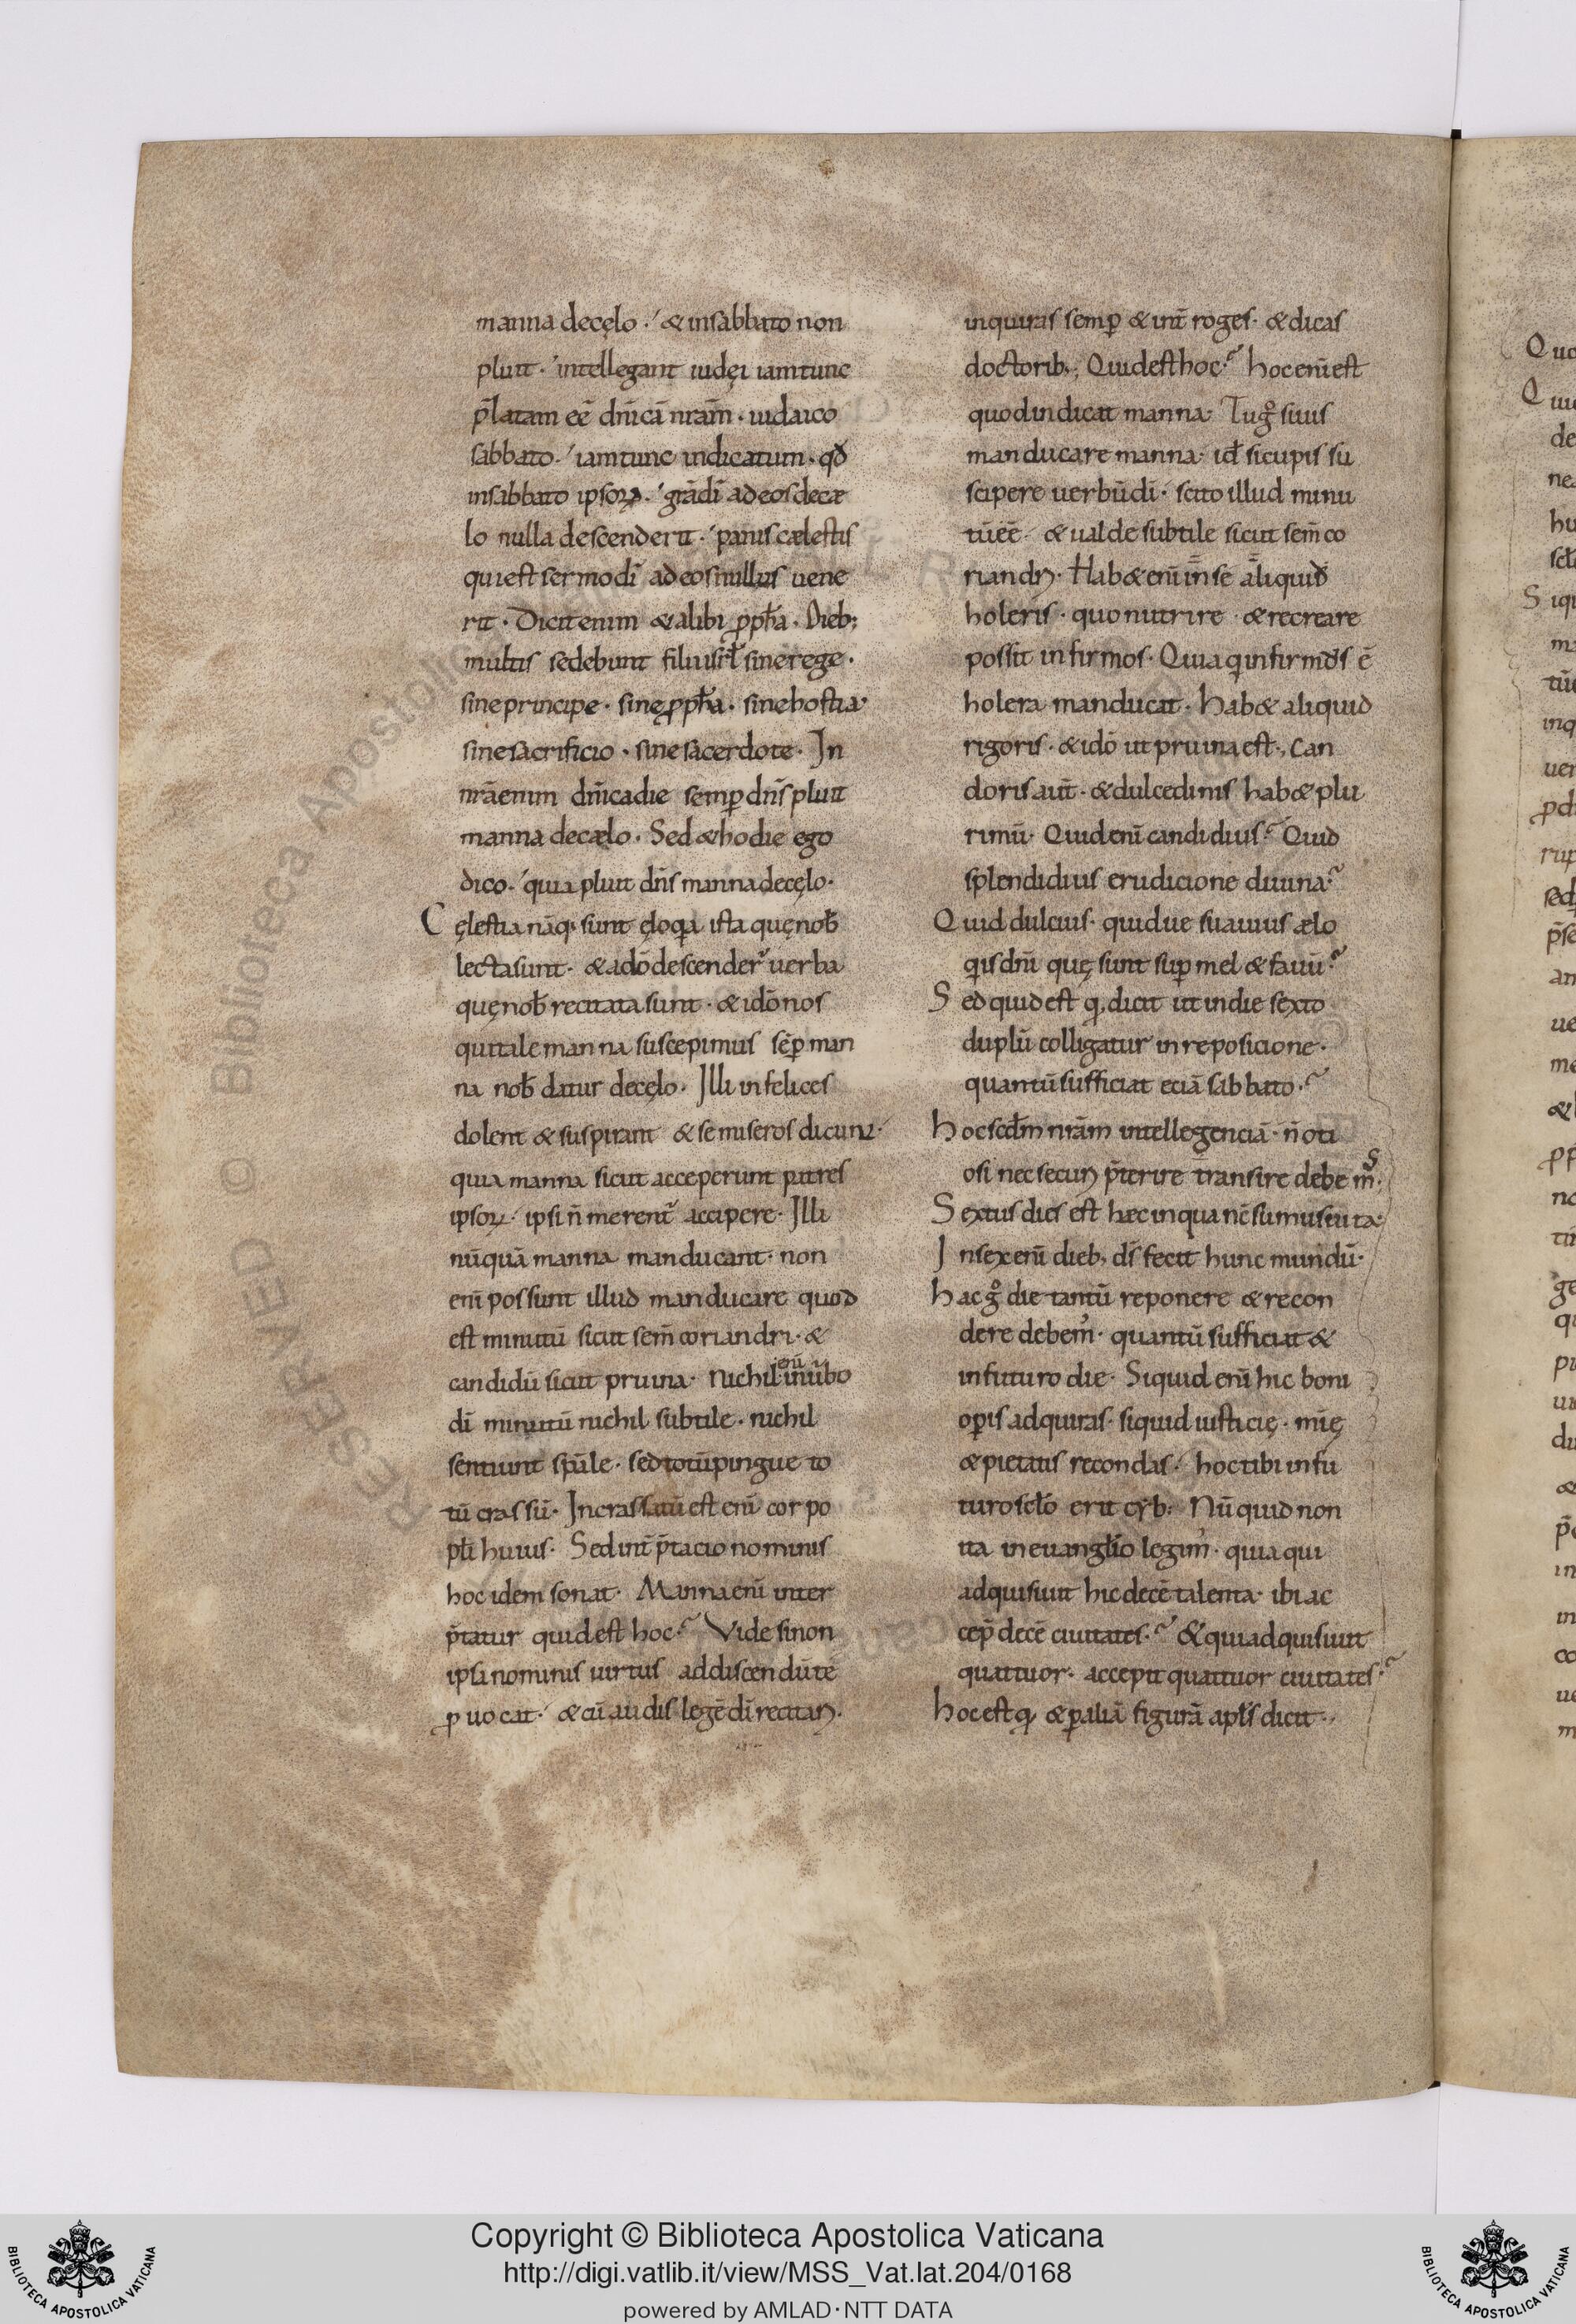 manna decęlo· & insabbato non
pluit· intellegant iudęi iamtunc
p̄latam eē dn̄icā nrām· iudaico
sabbato· iamtunc indicatum· qđ
insabbato ipsoꝝ· grādī adeosdecæ
lo nulla descenderit· panis cælestis
quiest sermodī adeosnullus uene
rit· Dicit enim & alibi ꝓph̄a· Dieb;
multis sedebunt filiiisrł sinerege·
sineprincipe· sineꝓph̄a· sinehostia·
sinesacrificio· sinesacerdote· In
nrāenim dn̄icadie semꝑ dn̄s pluit
manna decælo· Sed &hodie ego
dico· quia pluit dn̄s mannadecęlo·
Cęlestia nāq; sunt ęloq̄a ista quęnob̄
lectasunt· & adō descender̄ uerba
quęnob̄ recitata sunt· & idō nos
quitale manna suscepimus sēꝑ man
na nob̄ datur decęlo· Illi infelices
dolent & suspirant & se miseros dicunt·
quia manna sicut acceperunt patres
ipsoꝝ· ipsi n̄ merent̄ accipere· Illi
nūquā manna manducant· non
enī possunt illud manducare quod
est minutū sicut sem̄ coriandri· &
candidū sicut pruina· Nichil enī inūbo
dī minutū nichil subtile· nichil
sentiunt spūle· sedtotūpingue to
tū crassū· Incrassatū est enī cor po
płi huius· Sed int̄p̄tacio nominis
hoc idem sonat· Manna enī inter
p̄tatur quid est hoc? Vide sinon
ipsa nominis uirtus addiscendū te
ꝓuocat· & cū audis legē dī recitari·
inquiras semꝑ & int̄roges· & dicas
doctorib;, Quidesthoc? hocenīest
quodindicat manna· Tu gͦ siuis
manducare manna· id̄ sicupis su
scipere uerbūdī· scito illud minu
tū eē & ualde subtile sicut sem̄ co
riandri· Hab& enī in se aliquid
holeris· quo nutrire & recreare
possit infirmos· Quia q̄ infirmus ē
holera manducat· hab& aliquid
rigoris· & idō ut pruina est, Can
doris aūt· & dulcedinis hab& plu
rimū· Quid enī candidius? Quid
splendidius erudicione diuina?
Quid dulcius· quidue suauius ælo
q̄is dn̄i quę sunt suꝑ mel & fauū?
Sed quid est q̄ dicit ut in die sexto
duplū colligatur in reposicione·
quantū sufficiat eciā sabbato·?
hoc scd̄m nrām intellegenciā· n̄ oti
osi nec securi p̄terire transire debem̄s·
Sextus dies est hæc inqua nc̄ sumus uita·
In sex enī dieb; dс̄ fecit hunc mundū·
hac gͦ die tantū reponere & recon
dere debem̉· quantū sufficiat &
infuturo die· Siquid enī hic boni
opis adquiras· siquid iusticię· mię
& pietatis recondas· hoc tibi infu
turo scło erit cyb; Nūquid non
ita in euanglīo legim̉· quia qui
adquisiuit hic decē talenta· ibi ac
cep̄ decē ciuitates? & qui adquisiuit
quattuor· accepit quattuor ciuitates?
hoc est q̄ & p̱ aliā figurā apłs dicit·